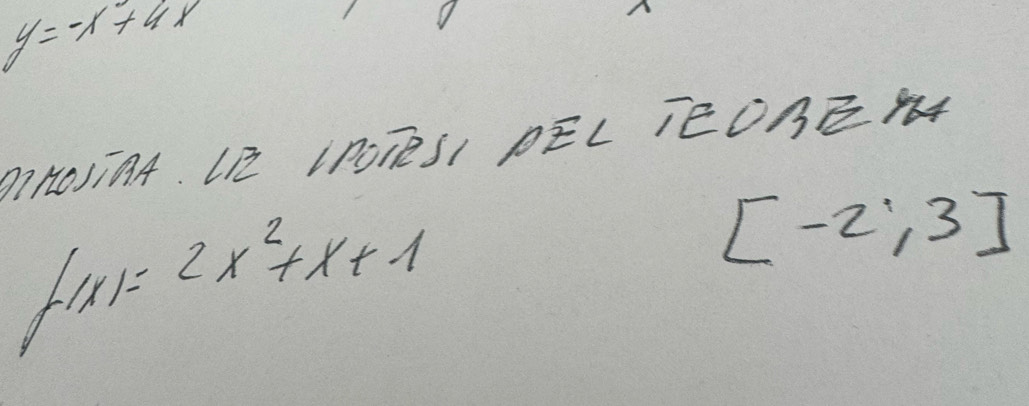 y=-x²+4x
DIMOSTRA. LE IPOTESI DEL TEOREMA
f(x)= 2x²+x+1 [-2;3]